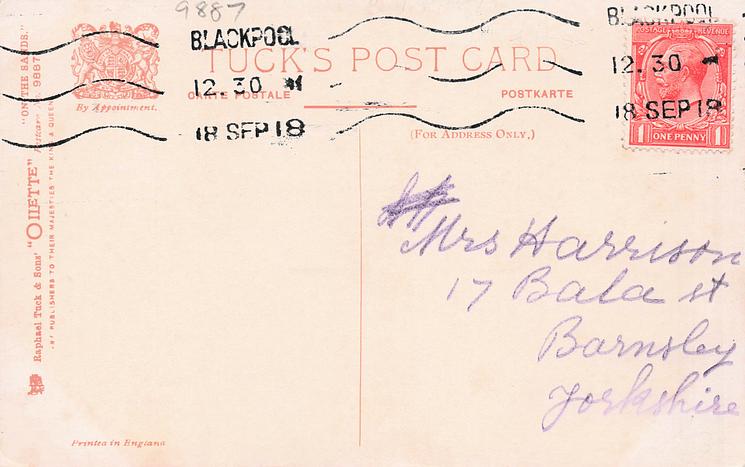 9887
BLACKPOOL
12.30
18 SEP 18
BLACKPOOL
12.30
18 SEP 18
TUCK'S POST CARD
CARTE POSTALE
POSTKARTE
(FOR ADDRESS ONLY.)
By Appointment.
POSTAGE REVENUE
1 ONE PENNY 1
"ON THE SANDS."
Postcard 9887
Raphael Tuck & Sons' "OILETTE"
PUBLISHERS TO THEIR MAJESTIES THE KING & QUEEN
Mrs Harrison
17 Bala st
Barnsley
Yorkshire
Printed in England